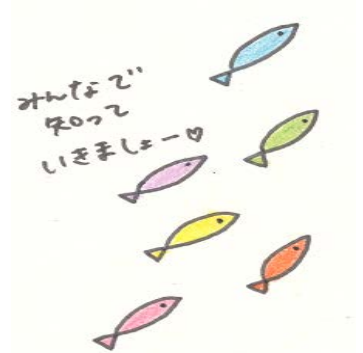 みんなで
知って
いきましょー♡